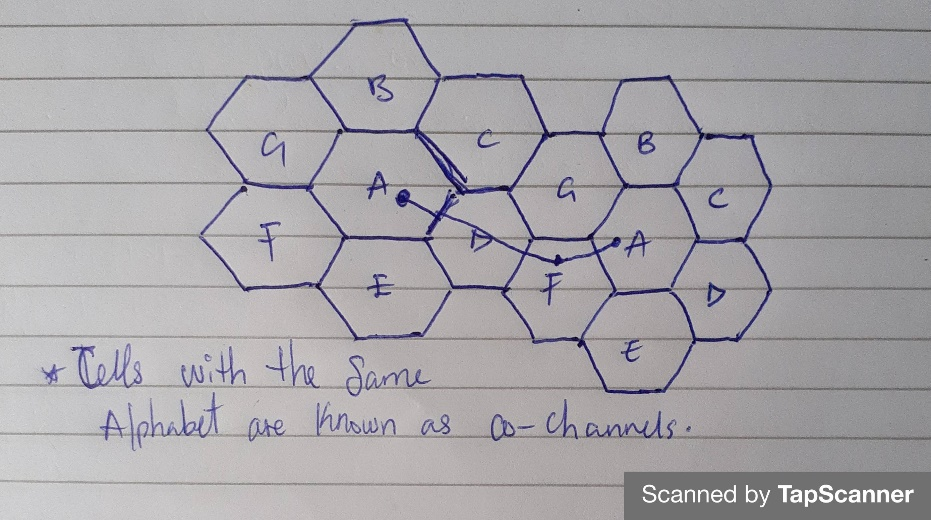 B
C
B
G
C
A
G
F
D
A
E
F
D
E
* Cells with the Same
Alphabet are Known as co-channels.
Scanned by TapScanner